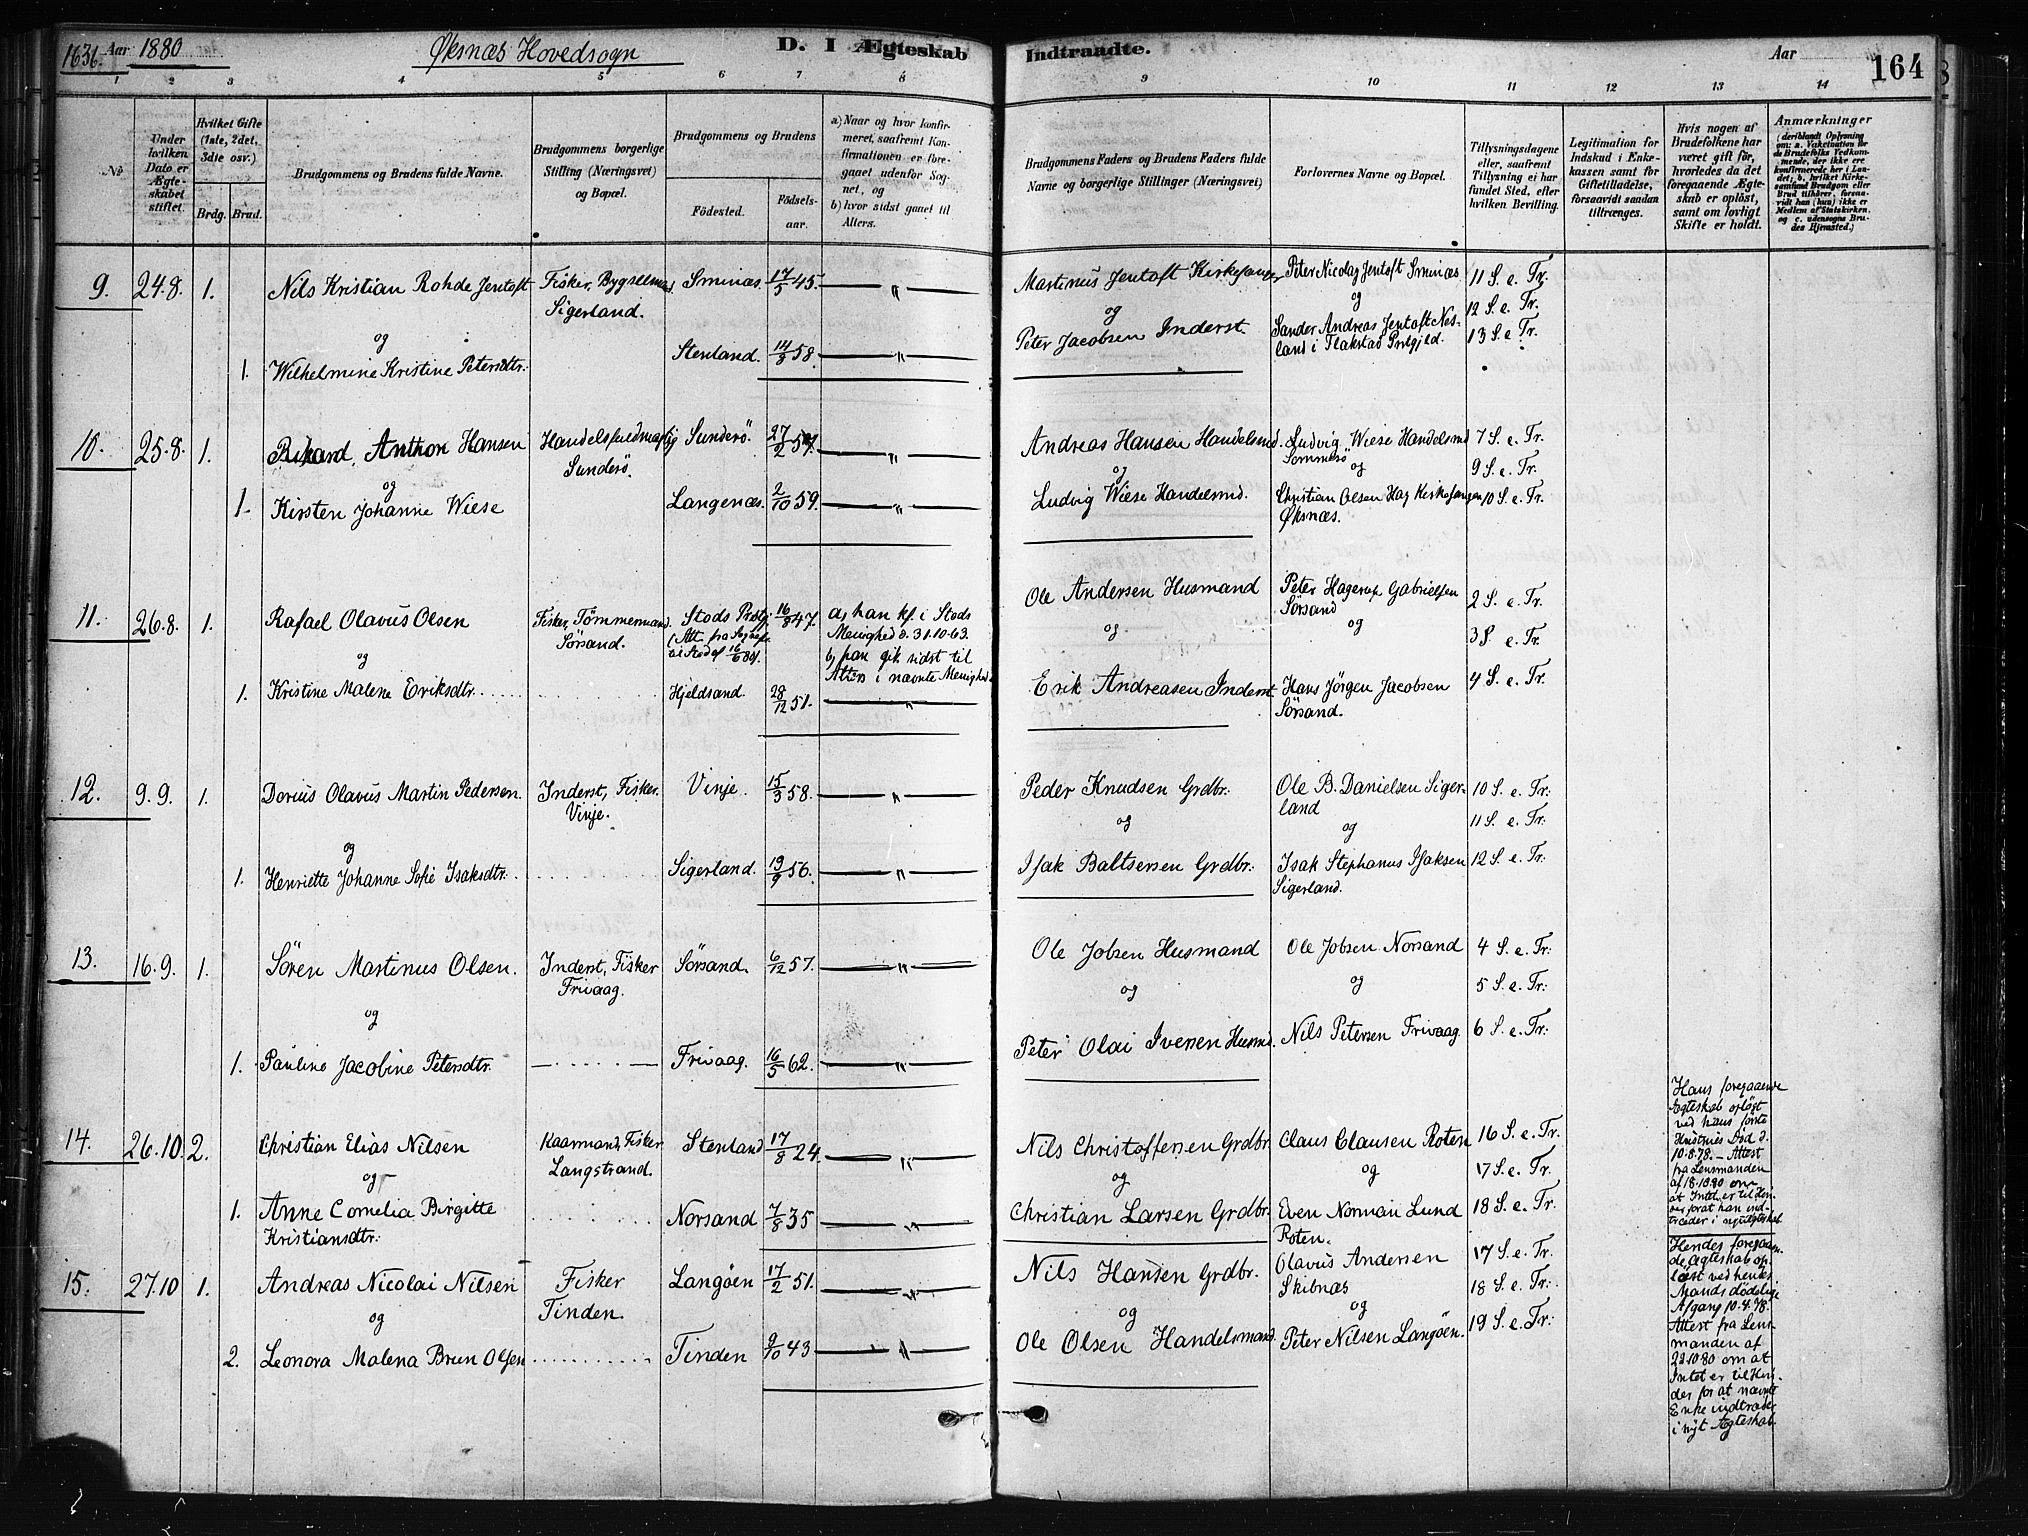 163b. Aar 1880 Øksnæs Hovedsogn D. I Ægteskab Indtraadte. Aar 164
1 2 3 4 5 6 7 8 9 10 11 12 13 14
No
Under hvilken Dato er Ægteskabet stiftet.
Hvilket Gifte (1ste, 2det, 3die osv.)
Brdg. Brud.
Brudgommens og Brudens fulde Navne.
Brudgommens borgerlige Stilling (Næringsvei) og Bopæl.
Brudgommens og Brudens
Fødested. Fødselsaar.
a) Naar og hvor konfirmeret, saafremt Konfirmationen er foregaaet udenfor Sognet, og
b) hvor sidst gaaet til Alters.
Brudgommens Faders og Brudens Faders fulde Navne og borgerlige Stillinger (Næringsvei)
Forlovernes Navne og Bopæl.
Tillysningsdagene eller, saafremt Tillysning ei har fundet Sted, efter hvilken Bevilling.
Legitimation for Indskud i Enkekassen samt for Giftetilladelse, forsaavidt saadan tiltrænges.
Hvis nogen af Brudefolkene har været gift før, hvorledes da det foregaaende Ægteskab er opløst, samt om lovligt Skifte er holdt.
Anmærkninger
(deriblandt Oplysning om: a. Vaksination for de Brudefolks Vedkommende, der ikke ere konfirmerede her i Landet; b. hvilket Kirkesamfund Brudgom eller Brud tilhører, forsaavidt han (hun) ikke er Medlem af Statskirken, og c. udensogns Brudes Hjemsted.)
9. 24.8. 1. Nils Kristian Rohde Jentoft Fisker, Bygselmand Sminæs. 17/5 45. — " — Martinus Jentoft Kirkesanger Peter Nicolay Jentoft Sminæs 11 S. e. Tr.
Sigerland.
og og og 12 S. e. Tr.
1. Wilhelmine Kristine Petersdtr. Stenland. 14/8 58. — " — Peter Jacobsen Inderst Sander Andreas Jentoft Nesland i Flakstad Prstgjeld. 13 S. e. Tr.
10. 25.8. 1. Rikard Anthon Hansen Handelsfuldmægtig Sunderö. 27/2 57. — " — Andreas Hansen Handelsmd. Ludvig Wiese Handelsmd 7 S. e. Tr.
Sunderö. Sommerö
og og og 9 S. e. Tr.
1. Kirsten Johanne Wiese Langenæs. 2/10 59. — " — Ludvig Wiese Handelsmd. Christian Olsen Hag Kirkesanger 10 S. e. Tr.
Øksnæs.
11. 26.8. 1. Rafael Olavus Olsen Fisker, Tömmermand. Stods Prstgj. 16/8 47. a, han kf. i Stods Ole Andersen Husmand Peter Hagerup Gabrielsen 2 S. e. Tr.
Sörsand. (Att. fra Sognepr. Menighed d. 31.10.63. Sörsand
til Stod af 16/6 80). b, han gik sidst til
og Alters i nævnte Menighed. og og 3 S e. Tr.
1. Kristine Malene Eriksdtr. Hjeldsand. 28/12 51. — " — Erik Andreasen Inderst Hans Jörgen Jacobsen 4 S. e. Tr.
Sörsand.
12. 9.9. 1. Dorius Olavus Martin Pedersen Inderst, Fisker. Vinje. 15/3 58. — " — Peder Knudsen Grdbr. Ole B. Danielsen Sigerland 10 S. e. Tr.
Vinje.
og og og 11 S. e. Tr.
1. Henriette Johanne Sofie Isaksdtr. Sigerland. 19/9 56. — " — Isak Baltsersen Grdbr. Isak Stephanus Isaksen 12 S. e. Tr:
Sigerland.
13. 16.9. 1. Sören Martinus Olsen. Inderst, Fisker Sörsand. 6/12 57. — " — Ole Jobsen Husmand Ole Jobsen Norsand 4 S. e. Tr:
Frivaag.
og og og 5 S. e. Tr:
1. Pauline Jacobine Petersdtr. Frivaag. 16/5 62. — " — Peter Olai Iversen Husmd. Nils Petersen Frivaag 6 S. e. Tr:
14. 26.10 2. Christian Elias Nilsen Kaarmand, Fisker Stenland 17/8 24. — " — Nils Christoffersen Grdbr. Claus Clausen Roten 16 S. e. Tr.
Langstrand.
og og og 17 S. e. Tr.
1. Anne Cornelia Birgitte Norsand 7/8 35 — " — Christian Larsen Grdbr. Even Normann Lund 18 S. e. Tr.
Kristiansdtr: Roten.
Hans foregaaende Ægteskab opløst
ved hans første
Hustrues Død d.
10.8.78. – Attest
fra Lensmanden
af 18.10.80 om
at Intet er til Hinder
for at han indtræder
i nyt Ægteskab.
15. 27.10 1. Andreas Nicolai Nilsen Fisker Langöen 17/2 51. — " — Nils Hansen Grdbr. Olavus Andersen 17 S. e. Tr.
Tinden. Skibnæs 18 S. e. Tr:
og og og
2. Leonora Malena Brun Olsen Tinden 9/10 43 — " — Ole Olsen Handelsmand. Peter Nilsen Langöen. 19 S. e. Tr:
Hendes foregaaende
Ægteskab opløst
ved hendes
Mands dødelige
Afgang 10.4.78.
Attest fra Lensmanden
af
22.10.80 om at
Intet er til Hinder
for at nævnte
Enke indtræder
i nyt Ægteskab